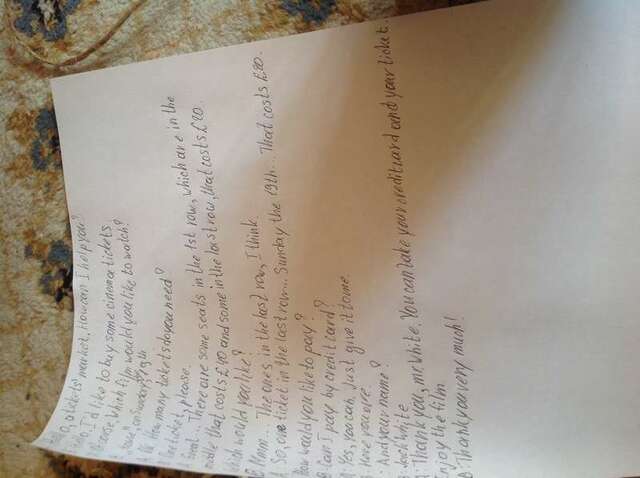 Hello, a tickets' market. How can I help you?
Hello, I'd like to buy some cinema tickets
Of course, Which film would you like to watch?
on Sunday, 19th
Ok How many tickets do you need?
One ticket, please.
Great... There are some seats in the 1st row, which are in the
middle that costs £40 and some in the last row, that costs £20.
Which would you like?
B: Hmm... The ones in the last row, I think.
A: So, one ticket in the last row... Sunday the 19th... That costs £20.
How would you like to pay?
B: Can I pay by credit card?
A: Yes, you can. Just give it to me.
Here you are.
And your name?
B: Jack White
A: Thank you, mr. White. You can take your credit card and your ticket.
Enjoy the film
B: Thank you very much!